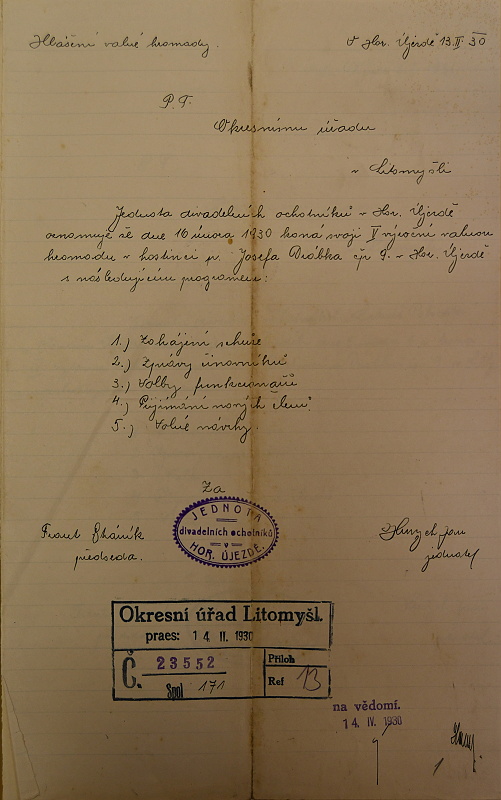 Hlášení valné hromady. V Hor. Újezdě 13.II.30
P. T.
Okresnímu úřadu
v Litomyšli
Jednota divadelních ochotníků v Hor. Újezdě
oznamuje že dne 16 února 1930 koná svoji V výroční valnou
hromadu v hostinci p. Josefa Drábka čp 9. v Hor. Újezdě
s následujícím programem:
1.) Zahájení schůze
2.) Zprávy činovníků
3.) Volby funkcionářů
4.) Přijímání nových členů.
5.) Volné návrhy.
Za
JEDNOTA
divadelních ochotníků
v
HOR. ÚJEZDĚ.
Frant
předseda.
Jan
jednatel
Okresní úřad Litomyšl.
praes: 14 II. 1930
Č. 23552
Spol 171
Příloh
Ref 13
na vědomí.
14. IV. 1930